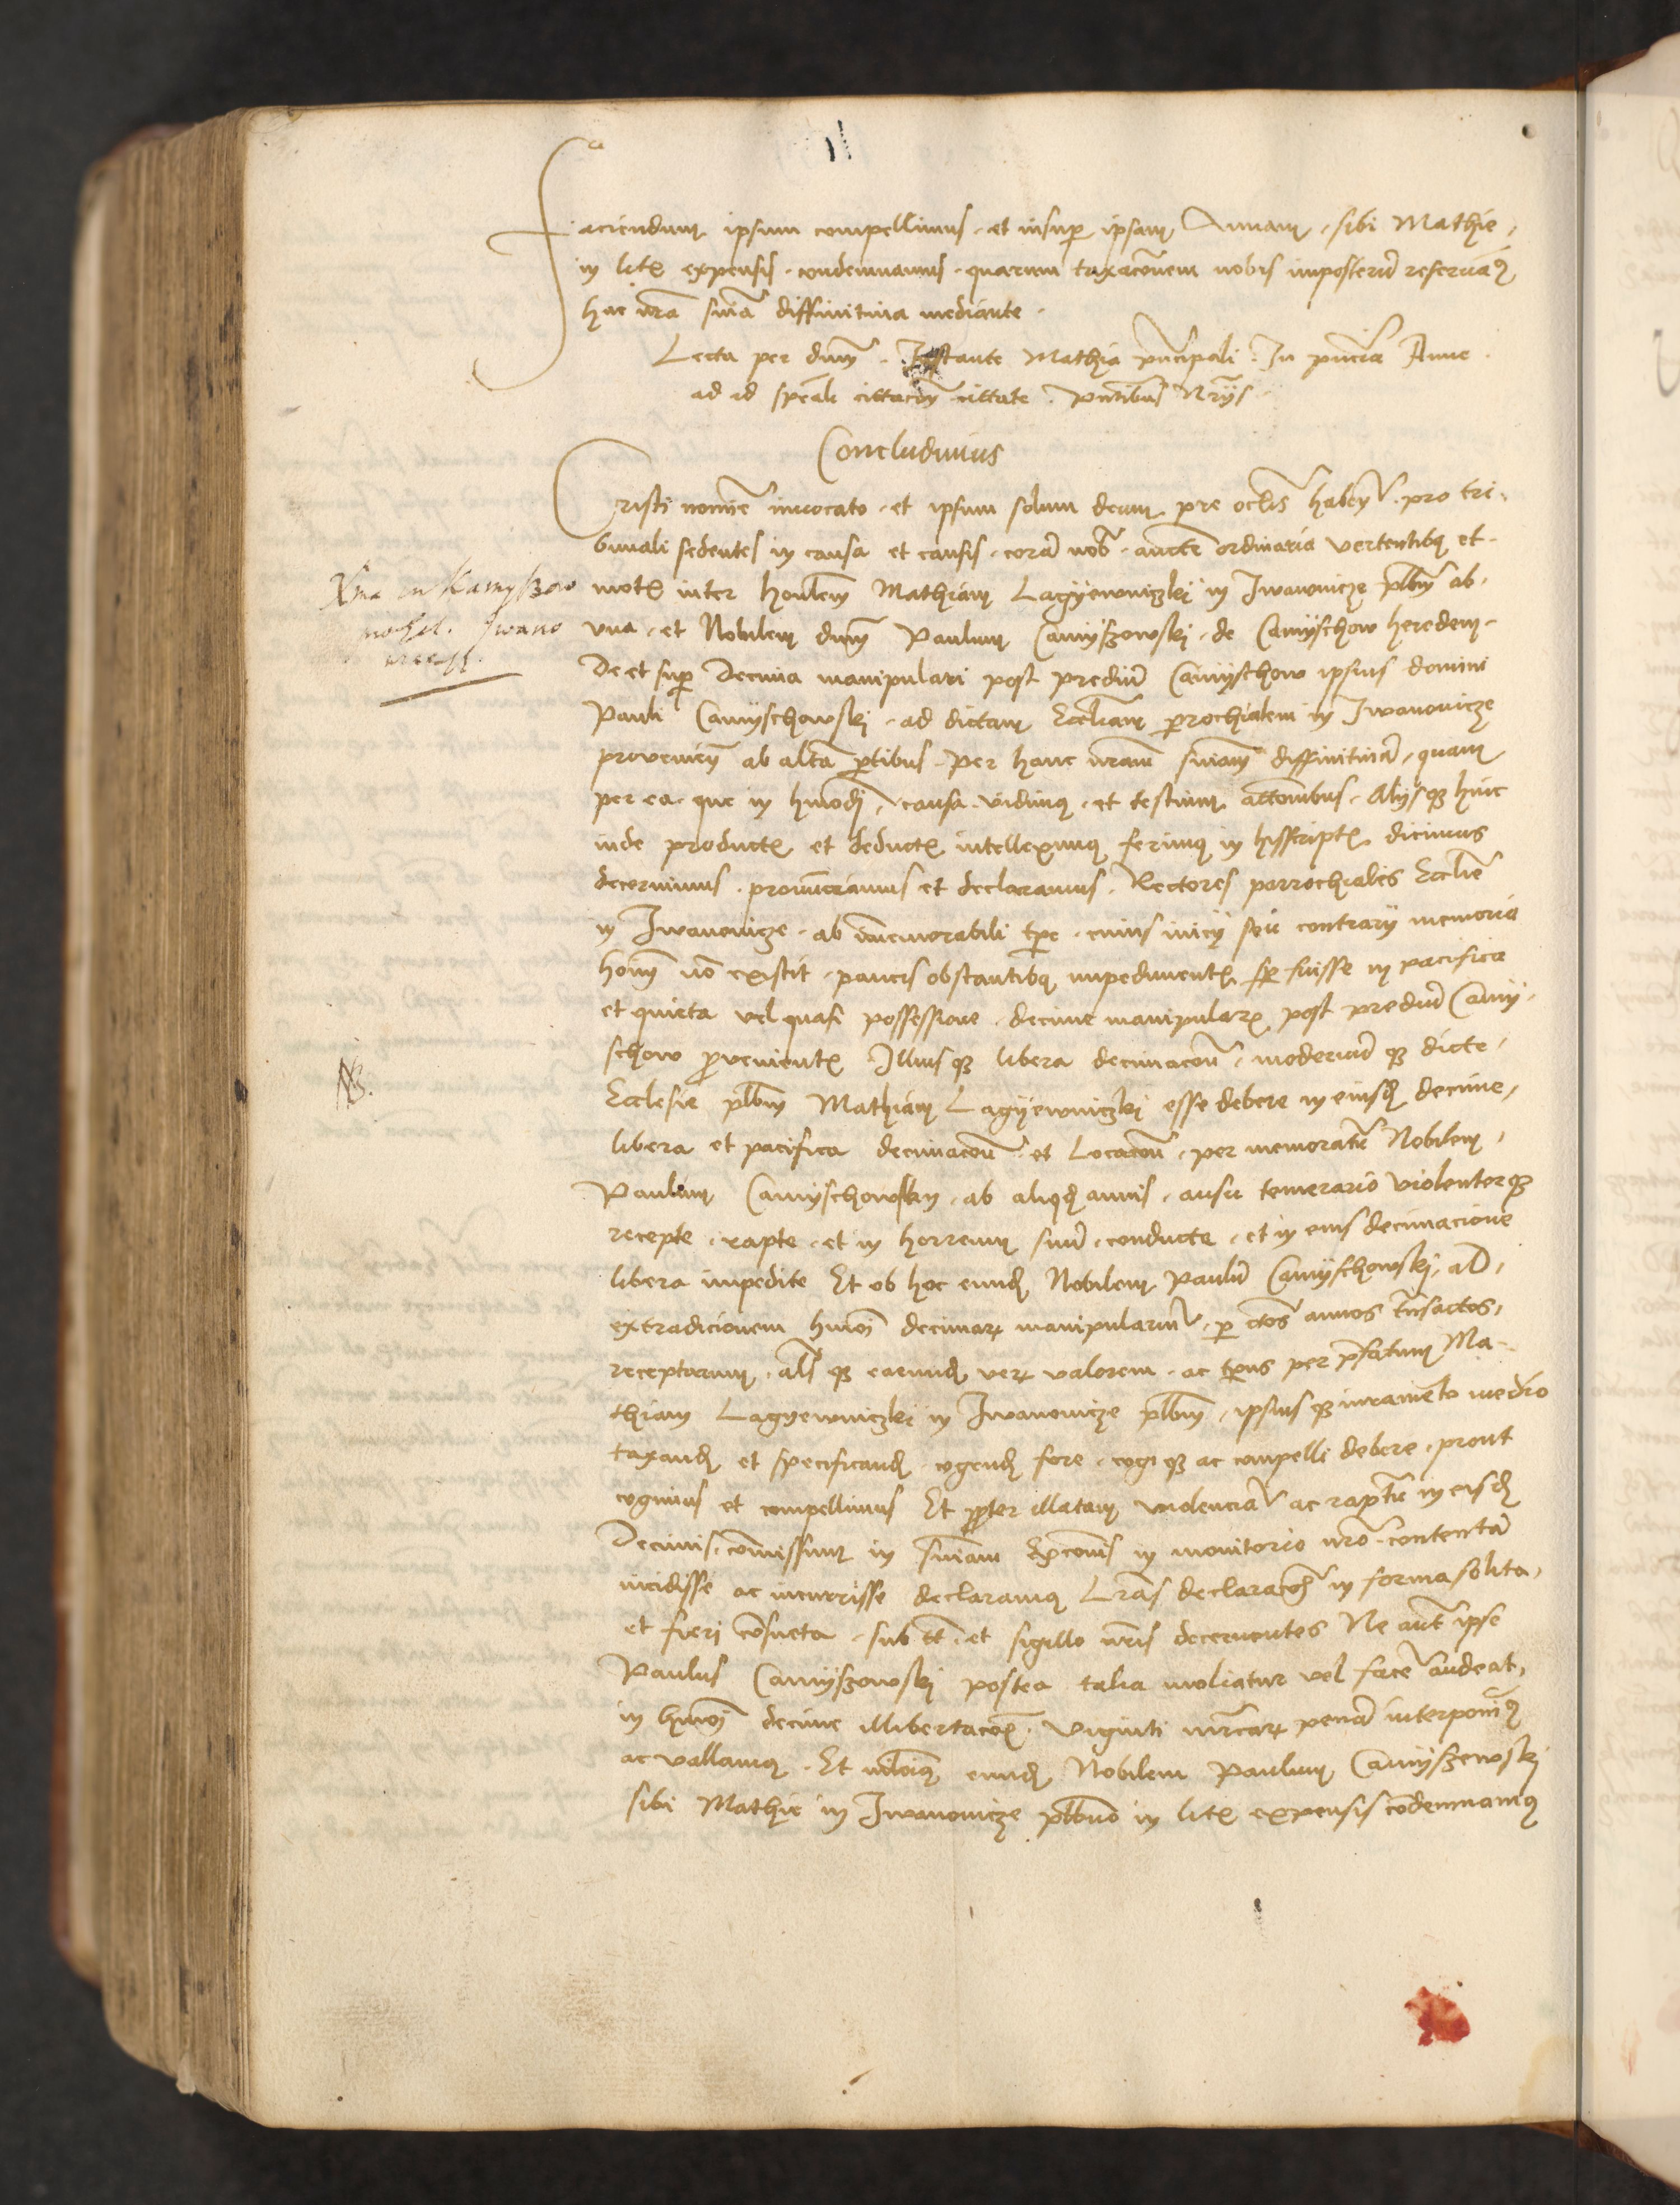 Faciendum ipsum compellimus · et insup ipsam Annam · sibi Mathie ·
in lit expensis · condemnamus · quarum taxacōnem nobis imposterū reseruam9
hac nrā sniā diffinitiua mediante ·
Lecta per dnm · Instante Mathia prīcipali · In pntia Anne ·
ad id spēale cittacōn cittate · pntibus Nrijs
Concludimus
Cristi nomine inuocato · et ipsum solum deum pre oclis haben · pro tri-
bunali sedentes in causa et causis · corā nob · aucte ordinaria vertentibq et
mot inter honlem Mathiam Lagÿewniczki in Iwanowicze plbm ab ·
vna · et Nobilem dnm Paulum Camÿszowski · de Camÿschow heredem ·
De et sup Decima manipulari post prediū Camÿschow ipsius domini
Pauli Camÿschowski · ad dictam Eccliam prochialem in Iwanowicze
provenien ab altā ptibus · Per hanc nram sniam diffinitiuā · quam
per ea · que in hmodi · causa · vidimq · et testium attōnibus · Alijsq3 hinc
inde product et deduct intelleximq ferimq in hijsscript dicimus
decernimus · pronunciamus et declaramus · Rectores parrochialis Ecclie
in Iwanowicze · ab immemorabili tpe · cuius inicij seu contrarij memoria
hōim nō existit · paucis obstantibq impediment sp fuisse in pacifica
et quieta vel quasi possessione · decime manipular post prediū Camÿ-
schow pvenient Illiusq3 libera decimacoē · modernū q3 dicte ·
Ecclesie plbm Mathiam Lagÿewniczki esse debere in eiusd decime ·
libera et pacifica decimacoē et Locacoē · per memoratū Nobilem ·
Paulum Camÿschowskij · ab aliqd annis · ausu temerario violenterq3
recepte · rapte · et in horreum suū · conducte · et in eius decimacione
libera impedite Et ob hoc eund Nobilem Paulū Camÿschowski · ad ·
extradicionem hmōi decimar manipulariū · p ctos annos trāsactos ·
receptarum · als q3 earund ver valorem · ac per pfatum Ma-
thiam Lagyewniczki in Iwanowicze plbm · ipsiusq3 iuramēto medio
taxand et specificand cogend fore · cogiq3 ac compelli debere · prout
cogimus et compellimus Et ppter illatam violenciā ac raptū in eisd
Decimis · commissum in sniam Excōnis in monitorio nrō · contentā
incidisse ac incurrisse declaramq Lras declaracō in forma solita ·
et fieri cōsueta · sub tt · et sigillo nris decernentes Ne aut ipse
Paulus Camÿszowski postea talia moliatur vel facē audeat ·
in hmōi decime illibertacōe · Viginti mrcar penā interponim9
ac vallamq · Et nihilōiq eund Nobilem Paulum Camÿszewski
sibi Mathie in Iwanowicze plbno in lit expensis cōdemnamq
Xma in Kamyszow
Iwano
NB.